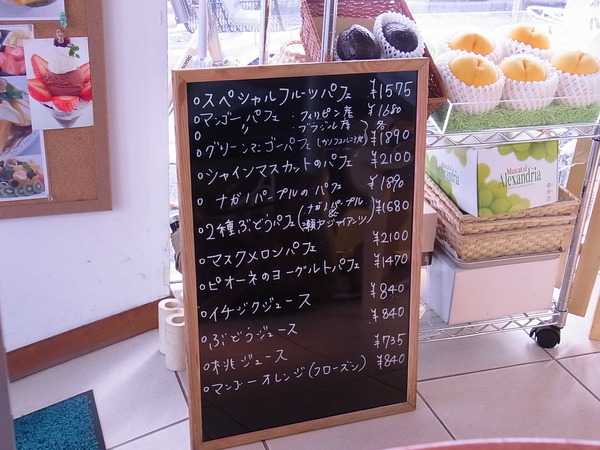 ○スペシャルフルーツパフェ ¥1575
○マンゴーパフェ:フィリピン産 ¥1680
○ 〃 :ブラジル産 各
○グリーンマンゴーパフェ ¥1890
○シャインマスカットのパフェ ¥2100
ナガノパープルのパフェ ¥1890
○2種ぶどうパフェ(ナガノパープル & 瀬戸ジャイアンツ) ¥1680
○マスクメロンパフェ ¥2100
○ピオーネのヨーグルトパフェ ¥1470
○イチジクジュース ¥840
○ぶどうジュース ¥840
○桃ジュース ¥735
○マンゴーオレンジ(フローズン) ¥840
Muscat of
Alexandria